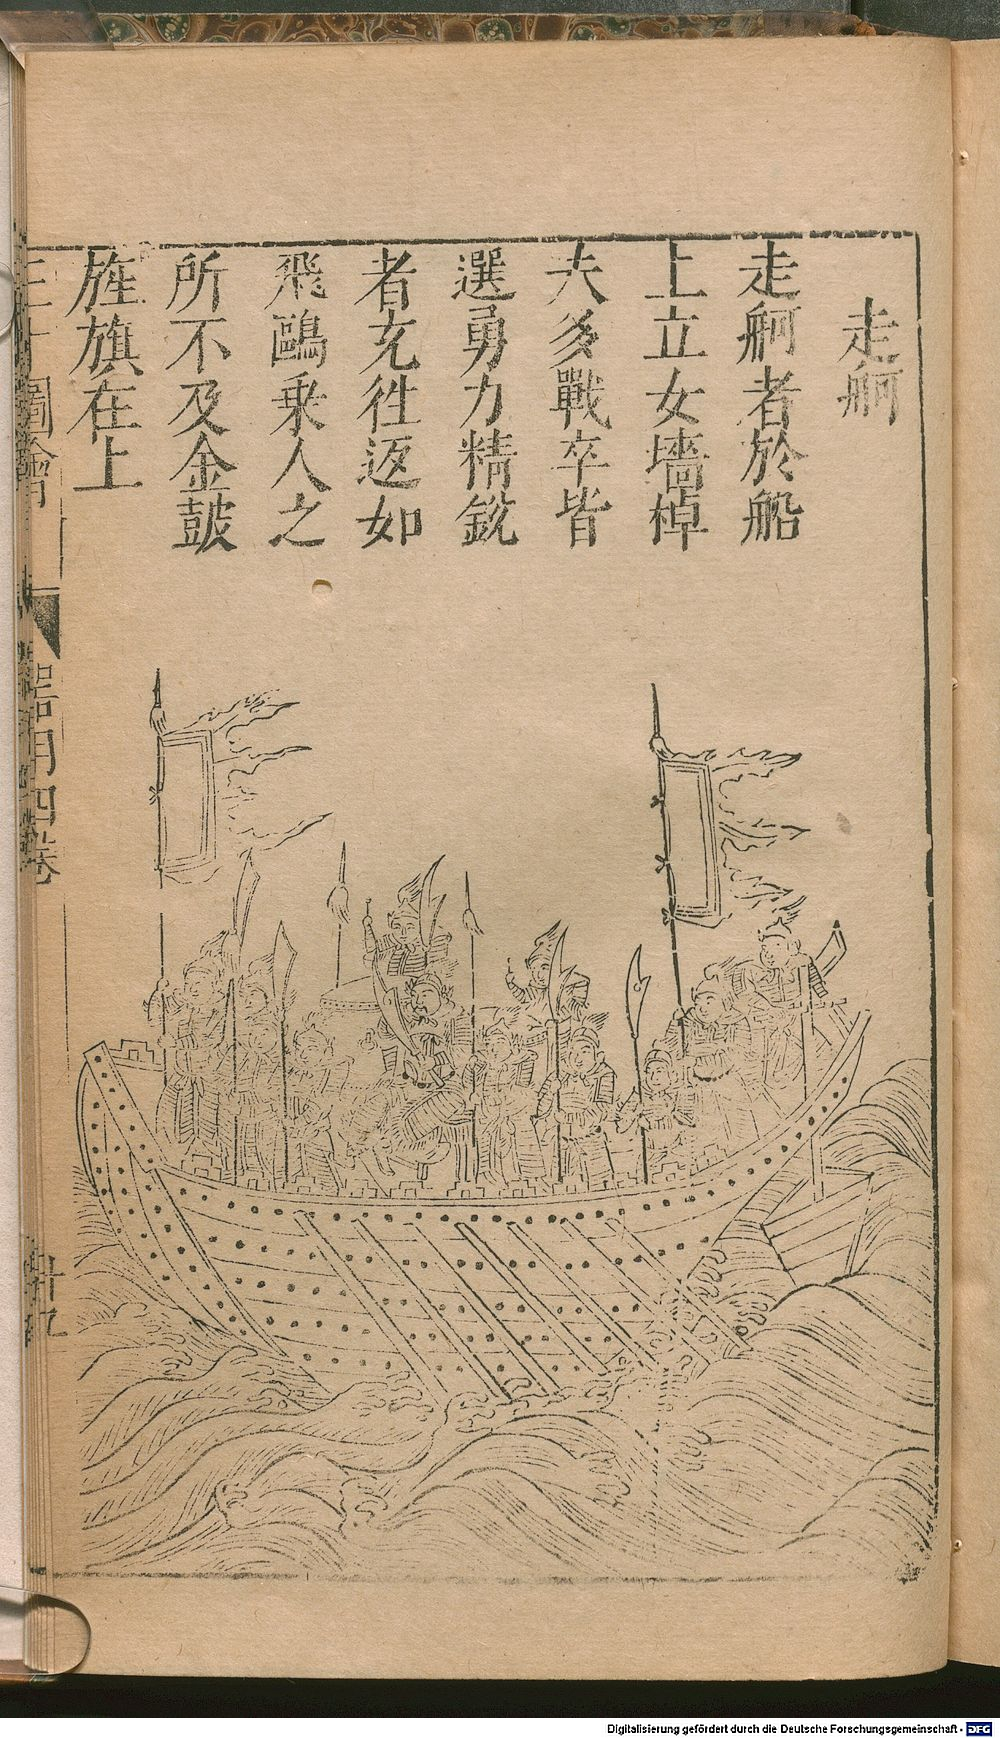 走舸
走舸者於船
上立女墻棹
夫多戰卒皆
選勇力精銳
者充徃返如
飛鷗乗人之
所不及金鼓
旌旗在上
三才圖會
器用四卷
卅九
Digitalisierung gefördert durch die Deutsche Forschungsgemeinschaft - DFG